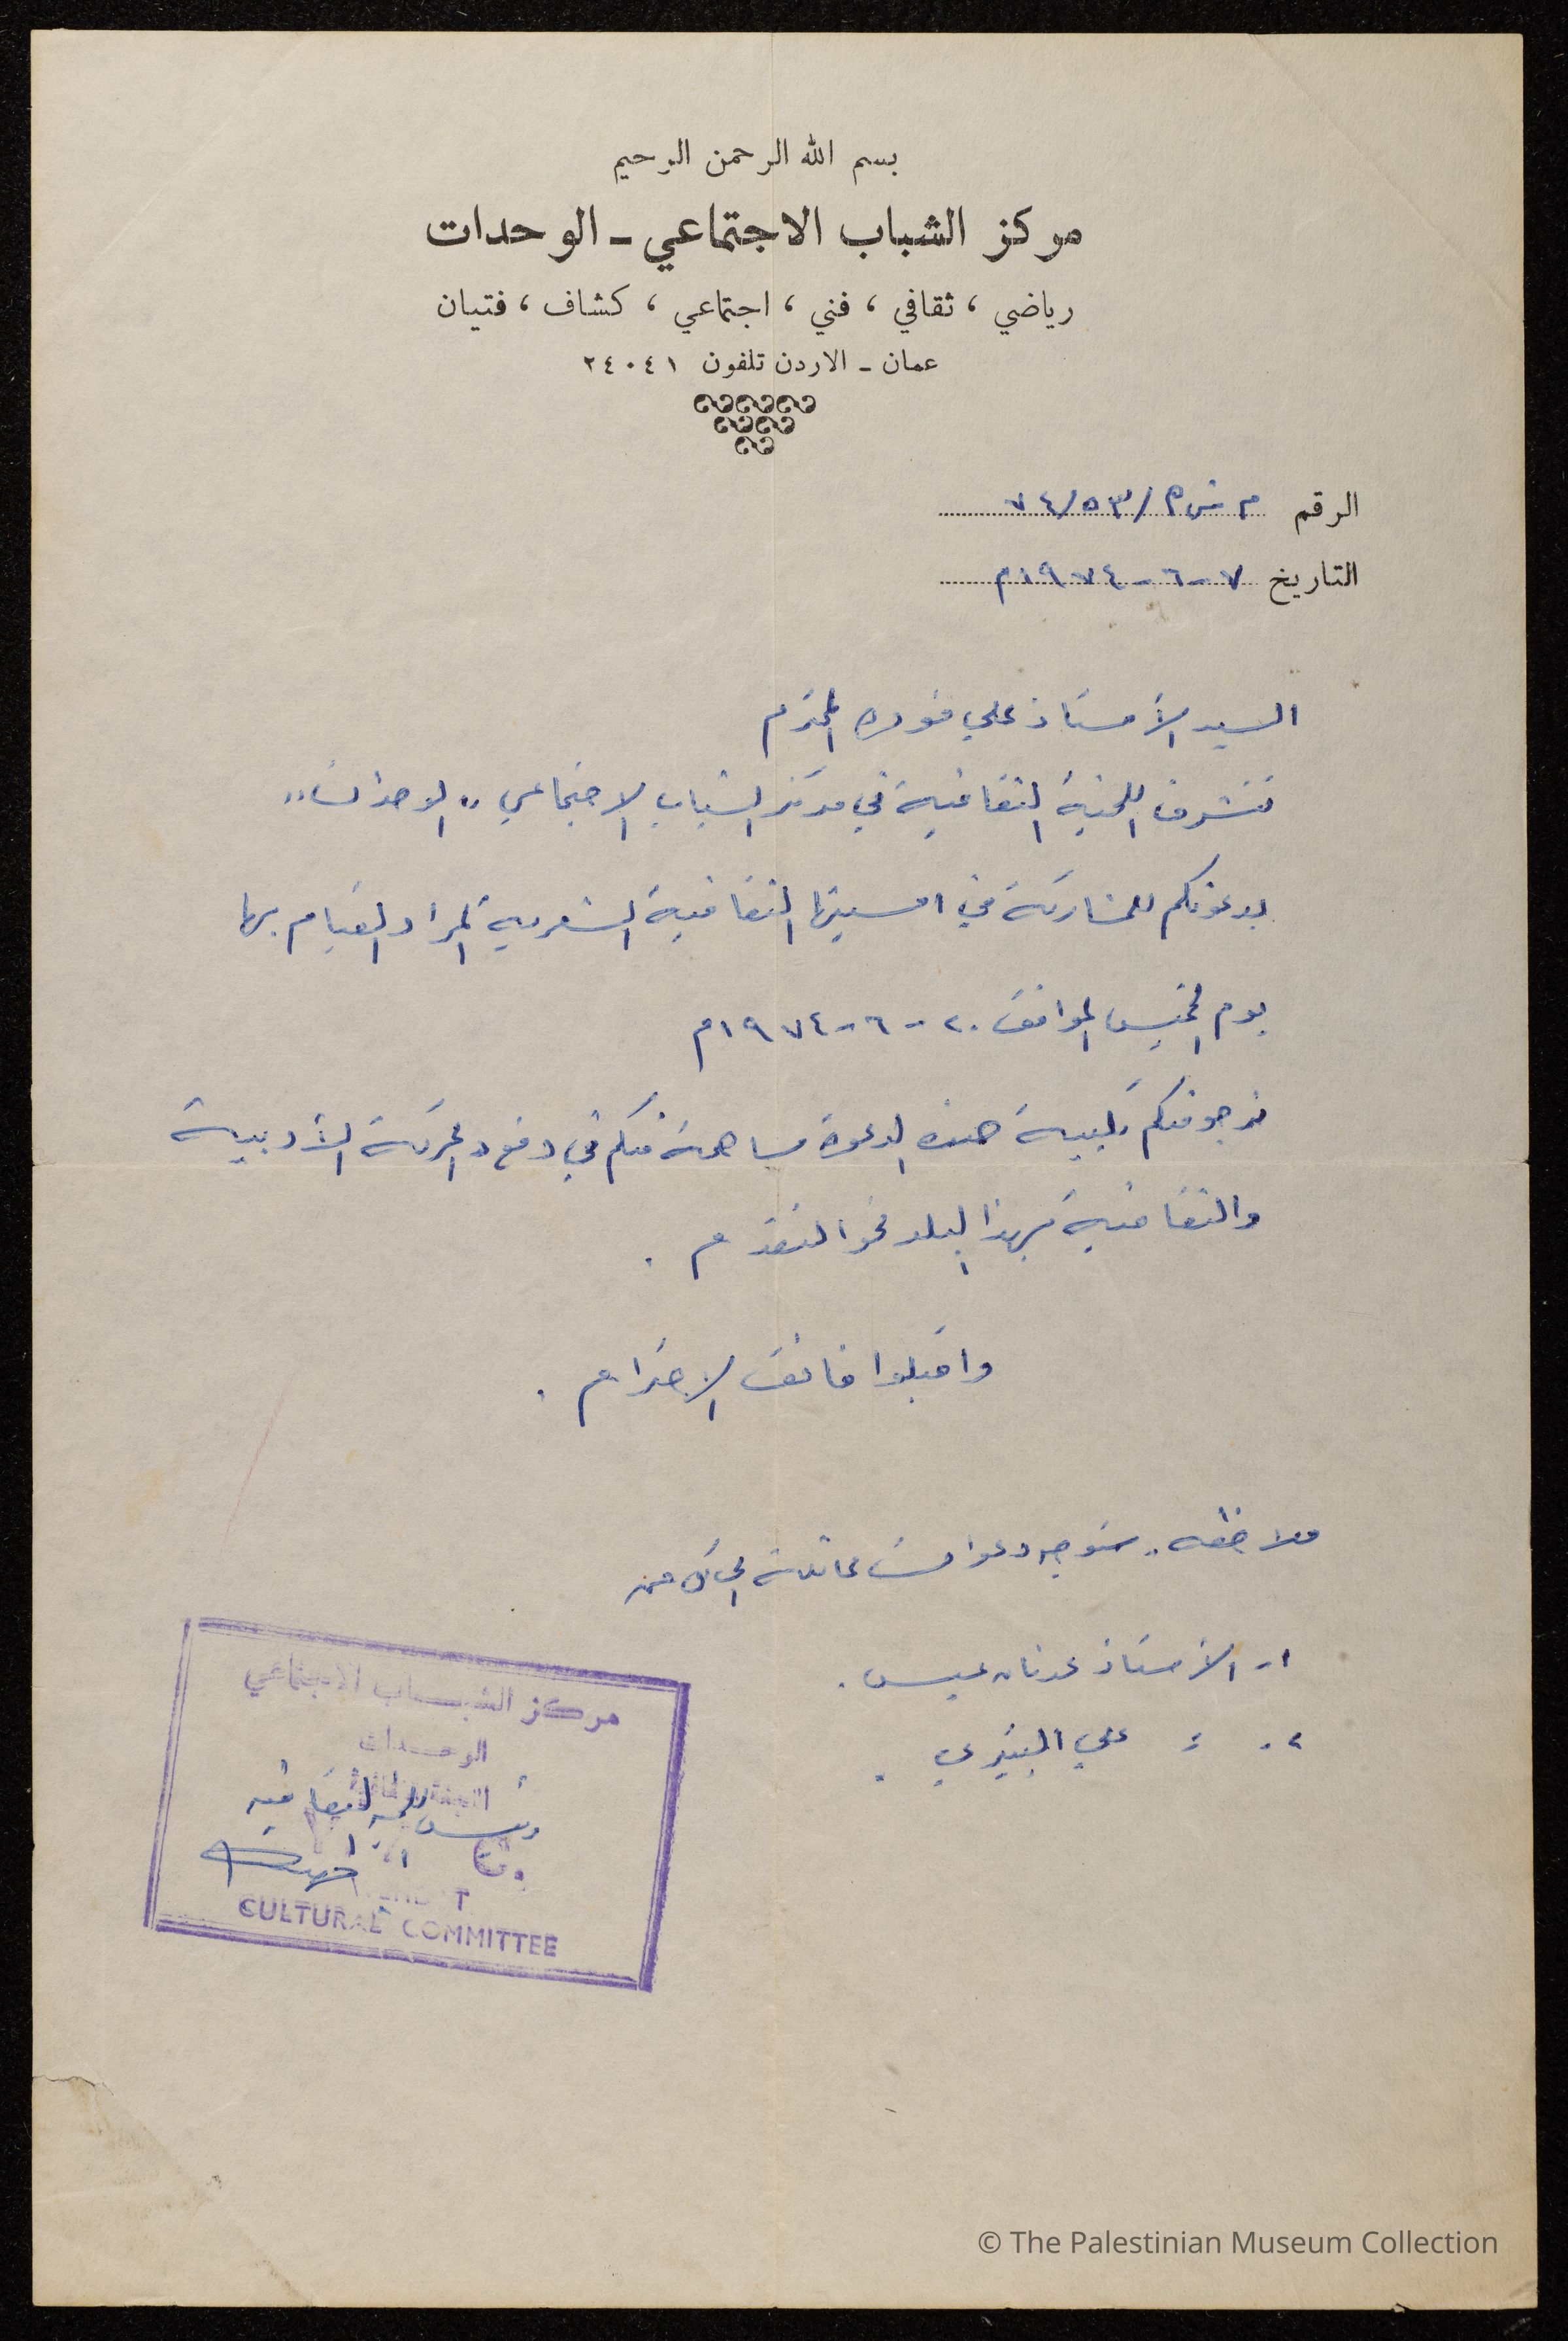 بسم الله الرحمن الرحيم
مركز الشباب الاجتماعي - الوحدات
رياضي ، ثقافي ، فني ، اجتماعي ، كشاف ، فتيان
عمان - الاردن تلفون ٢٤٠٤١
الرقم م ش م / ٥٣ / ٧٤
التاريخ ٧ - ٦ - ١٩٧٤م
السيد الأستاذ علي فوده المحترم
تتشرف اللجنة الثقافية في مركز الشباب الاجتماعي " الوحدات "
بدعوتكم للمشاركة في امسيتها الثقافية الشعرية المراد القيام بها
يوم الخميس الموافق ٢٠ - ٦ - ١٩٧٤م
نرجو منكم تلبية هذه الدعوة مساهمة منكم في دفع الحركة الأدبية
والثقافية بهذا البلد نحو التقدم .
واقبلوا فائق الاحترام .
ملاحظه : ستوجه دعوات مماثلة الى كل من
١- الأستاذ عدنان عيسى .
٢- = علي البتيري .
مركز الشباب الاجتماعي
الوحدات
اللجنة الثقافية
رئيس اللجنه الثقافيه
CULTURAL COMMITTEE
© The Palestinian Museum Collection